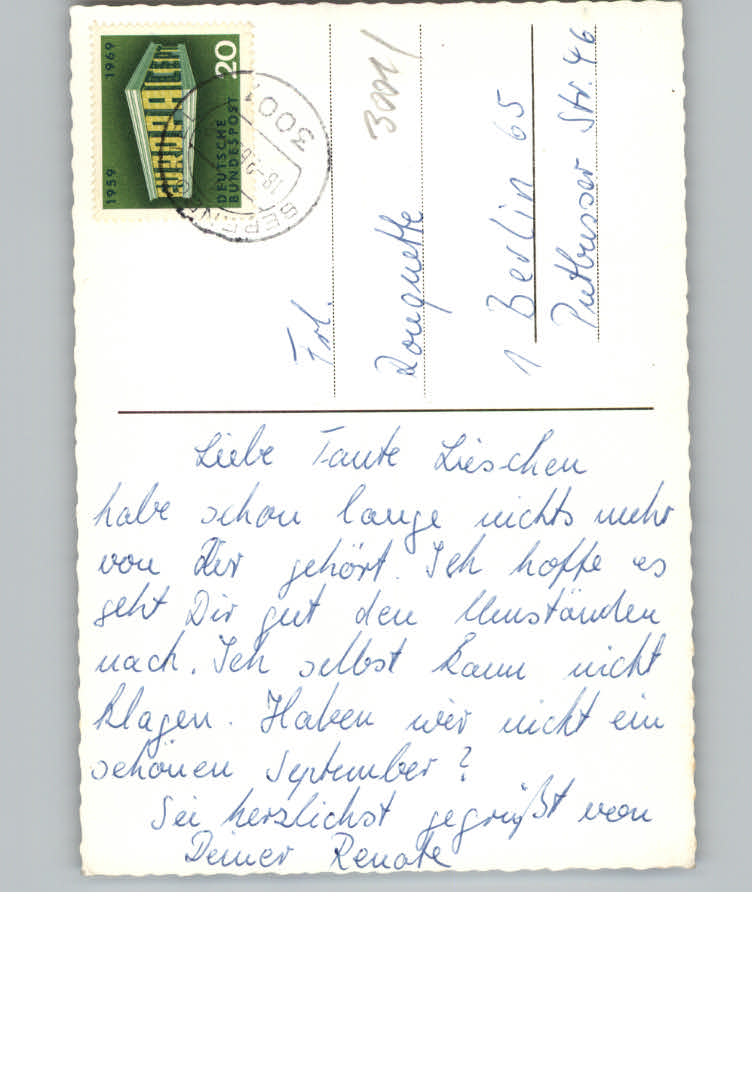 Liebe Tante Lieschen
habe schon lange nichts mehr
von Dir gehört. Ich hoffe es
geht Dir gut den Umständen
nach. Ich selbst kann nicht
klagen. Haben wir nicht ein
schönen September?
Sei herzlichst gegrüßt von
Deiner Renate
Frl.
Rouquette
1 Berlin 65
Putbusser Str. 46
1959 1969
EUROPA
CEPT
20
DEUTSCHE
BUNDESPOST
3001
30011